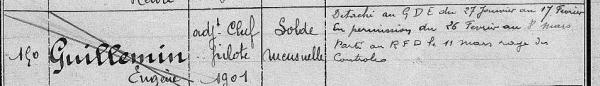 150 Guillemin
Eugène
adjt Chef
pilote
1901
Solde
mensuelle
Détaché au G D E du 27 Janvier au 17 Fevrier
En permission du 26 Fevrier au 8 Mars
Parti au R F D le 11 mars rayé des
Controles